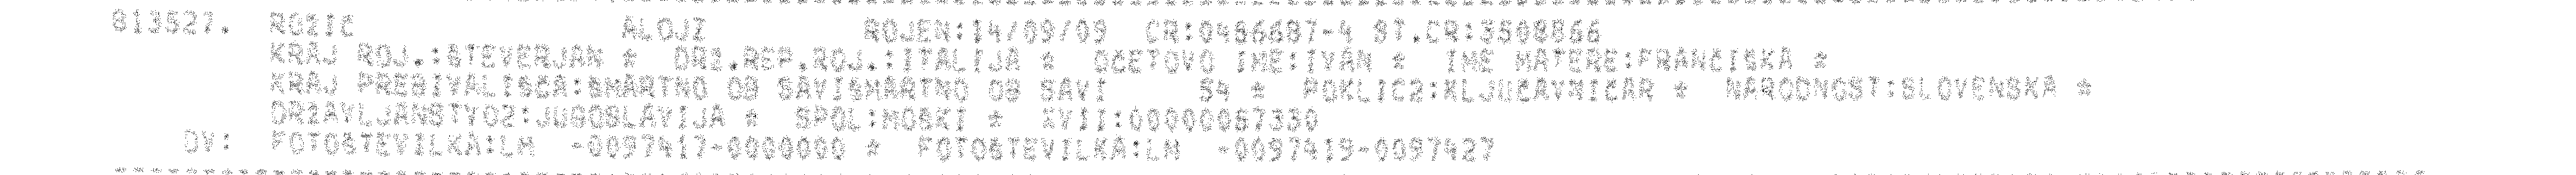 813527. ROŽIČ ALOJZ ROJEN:14/09/09 CR:0486687-4 ST.CR:3508866
KRAJ ROJ.:ŠTEVERJAN * DRŽ.REP.ROJ.:ITALIJA * OČETOVO IME:IVAN * IME MATERE:FRANČIŠKA *
KRAJ PREBIVALIŠČA:ŠMARTNO OB SAVIŠMARTNO OB SAVI 54 * POKLIC2:KLJUČAVNIČAR * NARODNOST:SLOVENSKA *
DRŽAVLJANSTVO2:JUGOSLAVIJA * SPOL:MOŠKI * XVII:00000067330
DV: FOTOŠTEVILKA:LM -0097417-0000000 * FOTOŠTEVILKA:LM -0097419-0097427